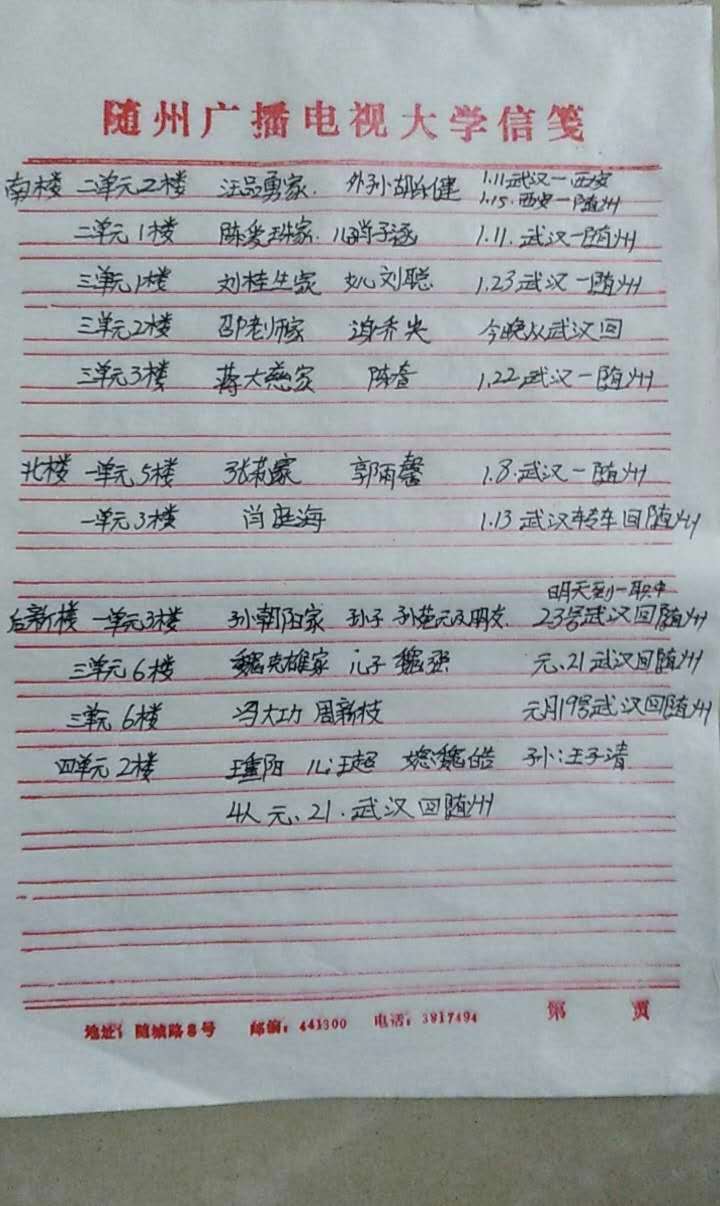 随州广播电视大学信笺
南楼 二单元2楼 汪品勇家. 外孙:胡 健 1.11.武汉—西安
1.15.西安—随州
二单元1楼 陈爱珠家. 儿:肖子逐 1.11.武汉—随州
三单元1楼 刘桂生家 女儿刘聪 1.23武汉—随州
三单元2楼 邵老师家 今晚从武汉回
三单元3楼 蒋大慈家 陈奎 1.22.武汉—随州
北楼 一单元5楼 张 家 郭雨馨 1.8.武汉—随州
一单元3楼 肖庭海 1.13武汉转车回随州
明天到一职中
后新楼 一单元3楼 孙朝阳家 孙子 孙苑元及朋友. 23号武汉回随州
三单元6楼 魏英雄家 儿子魏强 元、21武汉回随州
三单元6楼 冯大功 周新枝 元月19号武汉回随州
四单元2楼 王重阳 儿:王超 媳:魏皓 孙:王子清
4人元、21.武汉回随州
地址:随城路8号 邮编:441300 电话:3817494 第 页